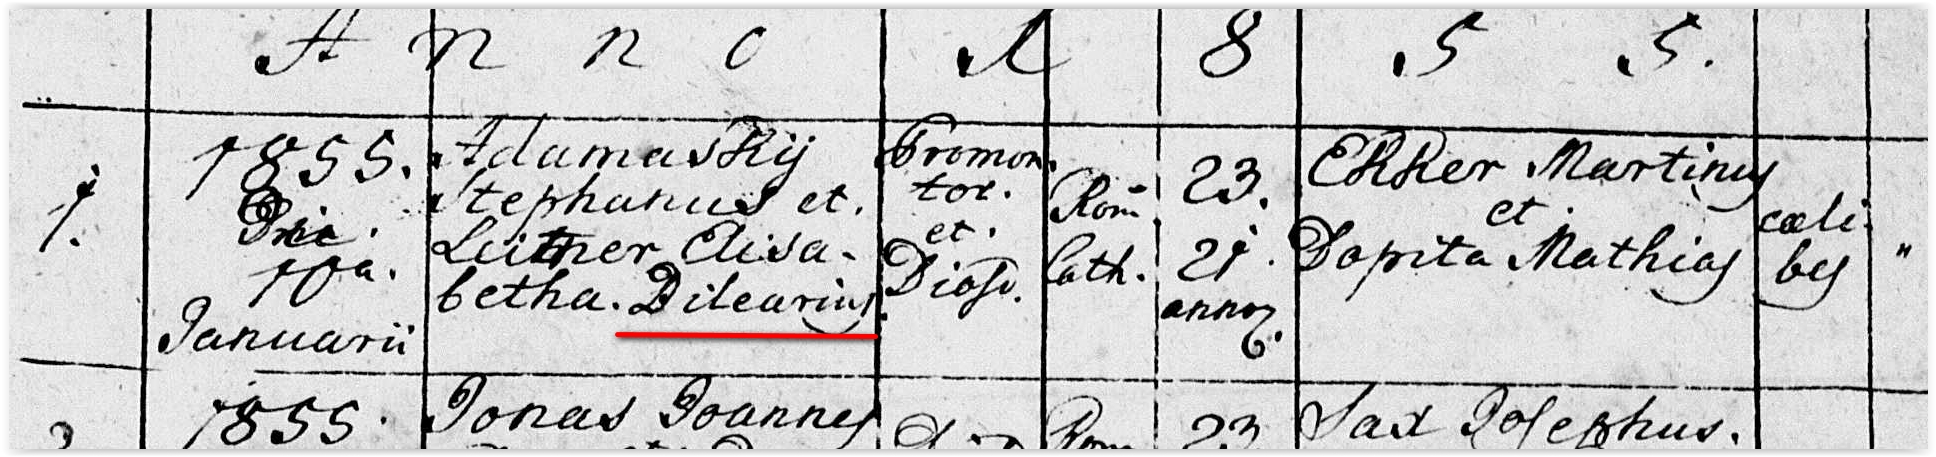 Anno 1855.
1.
1855.
Die
10a.
Januarii
Adamaskij
Stephanus et.
Leitner Elisa-
betha. Dilearius.
Promon.
tor.
et.
Diosd.
Rom.
Cath.
23.
21.
annor.
Ekker Martinus
et.
Dopita Mathias
cæli-
bes
"
2
1855.
Jonas Joannes
Rom
23
Sax Josephus.